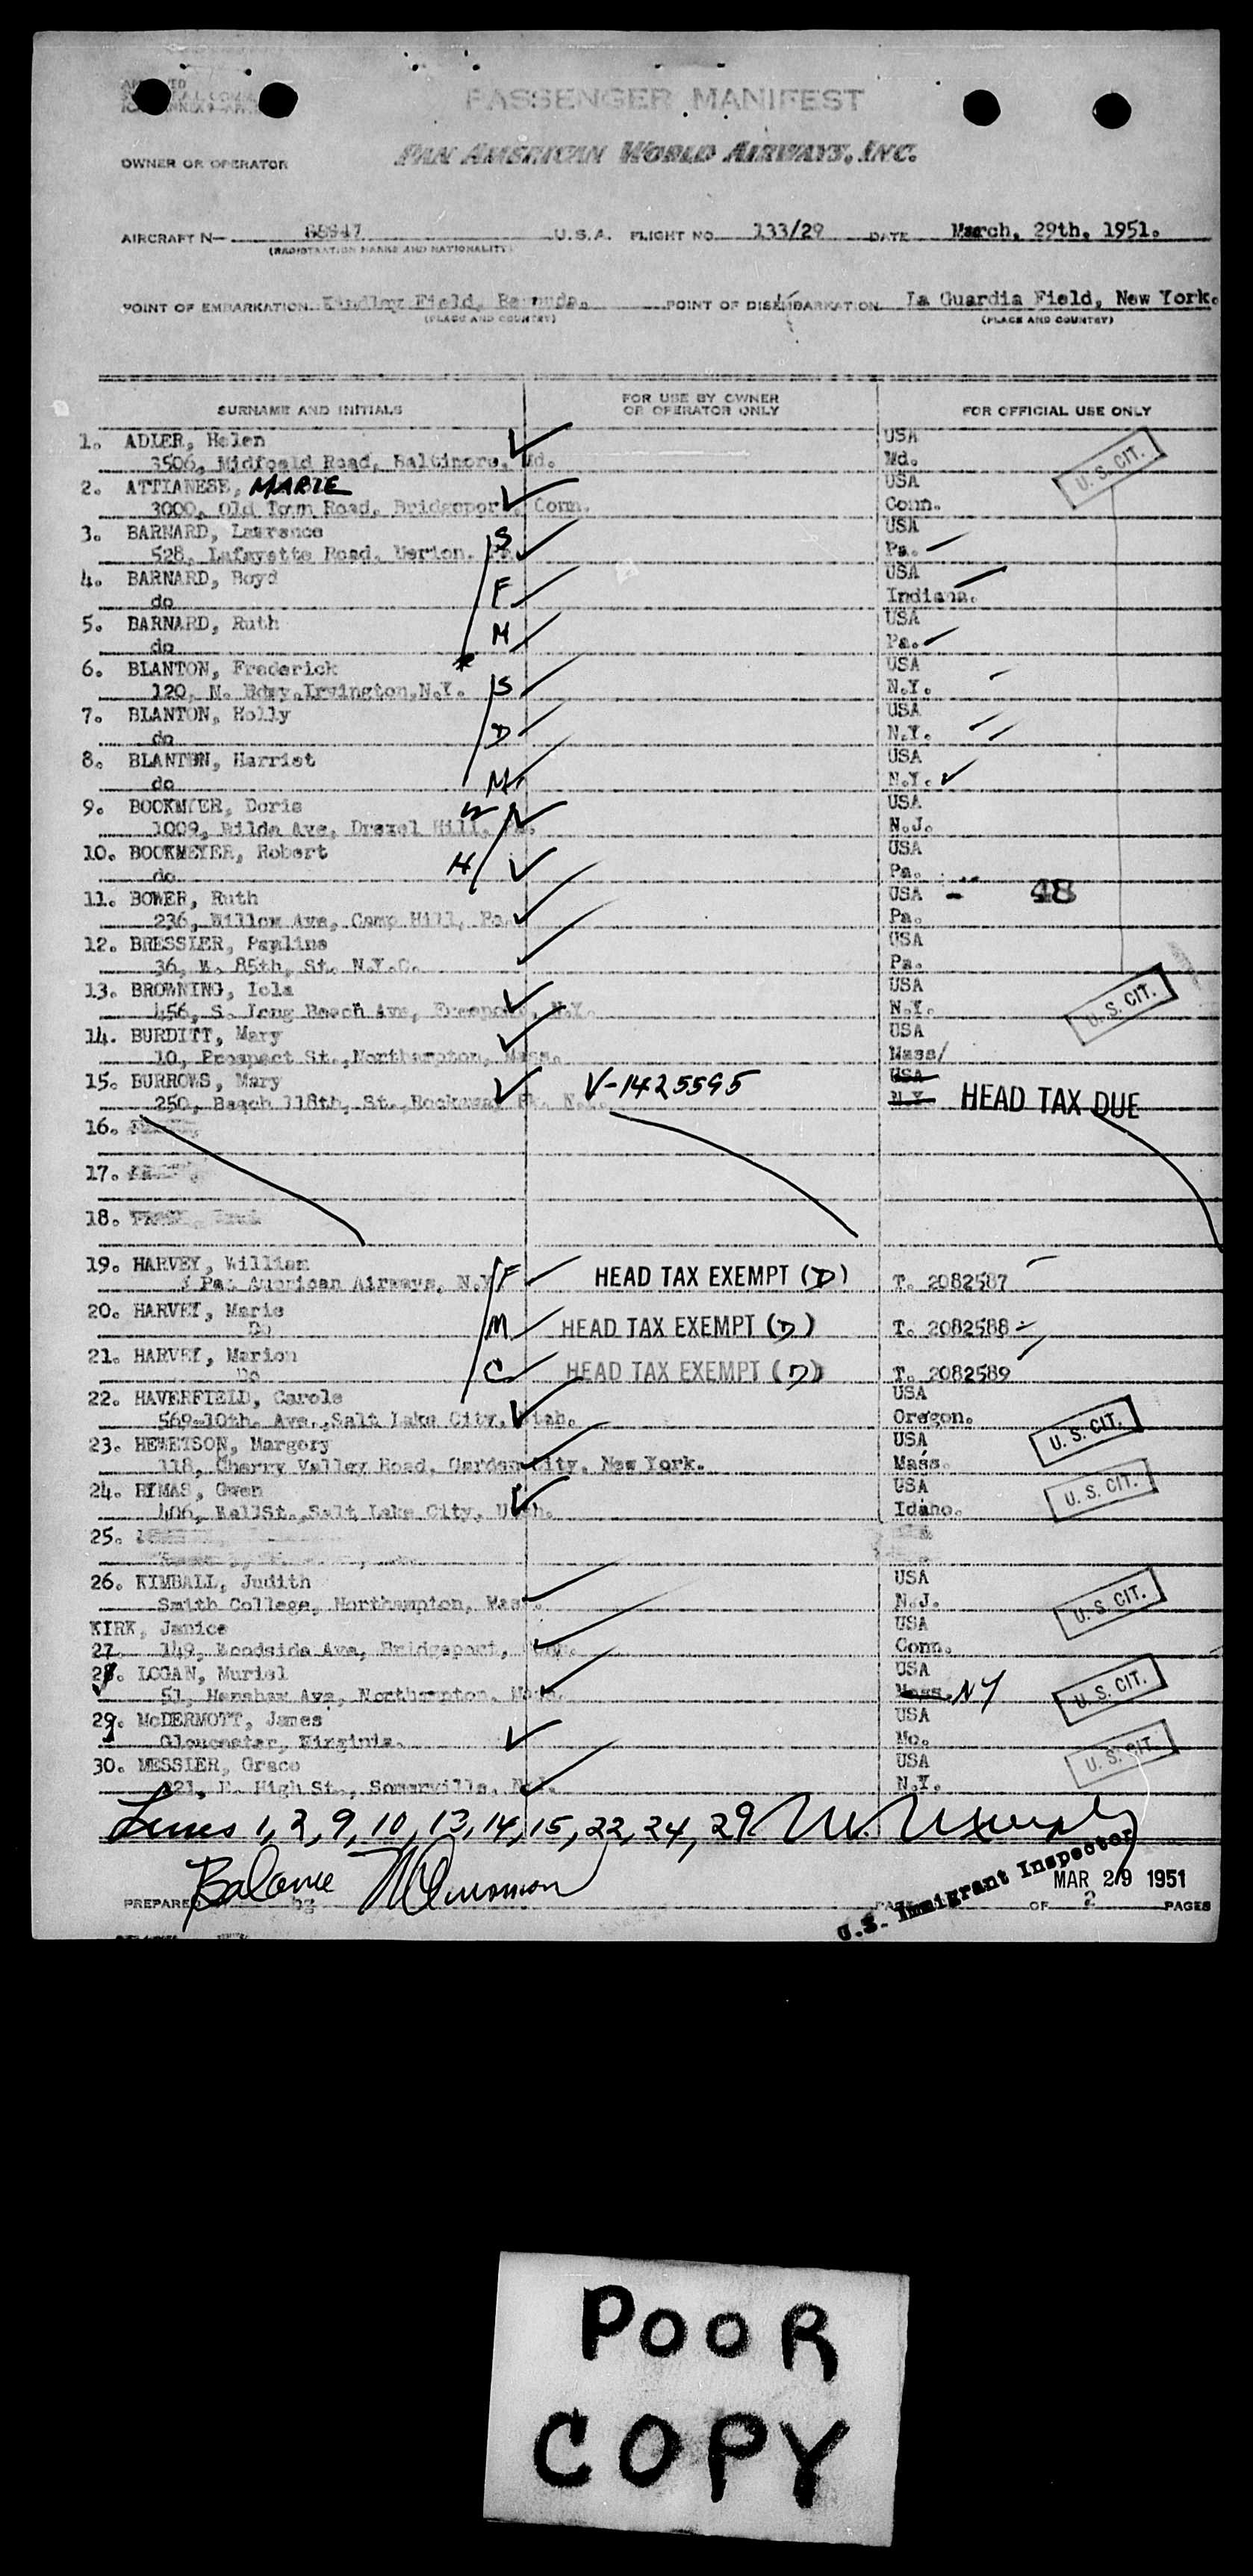 PASSENGER MANIFEST
OWNER OR OPERATOR PAN AMERICAN WORLD AIRWAYS, INC.
AIRCRAFT N— U.S.A. FLIGHT NO. 133/29 DATE March, 29th, 1951.
(REGISTRATION MARKS AND NATIONALITY)
POINT OF EMBARKATION Kindley Field, Bermuda. POINT OF DISEMBARKATION La Guardia Field, New York.
(PLACE AND COUNTRY) (PLACE AND COUNTRY)
SURNAME AND INITIALS FOR USE BY OWNER OR OPERATOR ONLY FOR OFFICIAL USE ONLY
1. ADLER, Helen USA
3506, Road, Baltimore, Md. Md. U. S. CIT.
2. ATTIANESE, MARIE USA
3000, Old Town Road, Bridgeport, Conn. Conn.
3. BARNARD, Lawrence S USA
528, Lafayette Road, Merion. Pa. Pa.
4. BARNARD, Boyd F USA
do Indiana.
5. BARNARD, Ruth M USA
do Pa.
6. BLANTON, Frederick USA
120, N. Bdwy, Irvington, N.Y. S N.Y.
7. BLANTON, Holly USA
do D N.Y.
8. BLANTON, Harriet USA
do M N.Y.
9. BOOKMIER, Doris W USA
1009, Ave, Drexel Hill, Pa. N.J.
10. BOOKMEYER, Robert H USA
do Pa.
11. BOWER, Ruth USA - 48
236, Willow Ave, Camp Hill, Pa. Pa.
12. BRESSIER, Pauline USA
36, 85th, St. N.Y.C. Pa.
13. BROWNING, Iola USA
456, S. Long Beach Ave, Freeport, N.Y. N.Y. U. S. CIT.
14. BURDITT, Mary USA
10, Prospect St., Northampton, Mass. Mass/
15. BURROWS, Mary V-1425595 USA
250, Beach 118th, St., Rockaway Pk. N.Y. N.Y. HEAD TAX DUE
16.
17.
18.
19. HARVEY, William F HEAD TAX EXEMPT (D)
American Airways, N.Y. T. 2082587
20. HARVEY, Marie M HEAD TAX EXEMPT (D)
Do T. 2082588
21. HARVEY, Marion C HEAD TAX EXEMPT (D)
Do T. 2082589
22. HAVERFIELD, Carole USA
569-10th. Ave., Salt Lake City, Utah. Oregon. U. S. CIT.
23. HEWETSON, Margery USA
118, Cherry Valley Road, Garden City, New York. Mass.
24. Gwen USA
406, St., Salt Lake City, Utah. Idaho. U. S. CIT.
25.
26. KIMBALL, Judith USA
Smith College, Northampton, Mass. N.J. U. S. CIT.
KIRK, Janice USA
27 149, Woodside Ave, Bridgeport, Conn.
28. LOGAN, Muriel USA
51, Henshaw Ave, Northampton, Mass. Mass. NY U. S. CIT.
29. McDERMOTT, James USA
Gloucester, Virginia. Mo.
30. MESSLER, Grace USA U. S. CIT.
221, E. High St., Somerville, N.J. N.Y.
Lines 1, 2, 9, 10, 13, 14, 15, 22, 24, 29
Balance
U.S. Immigrant Inspector
MAR 29 1951
PREPARED OF 2 PAGES
POOR
COPY